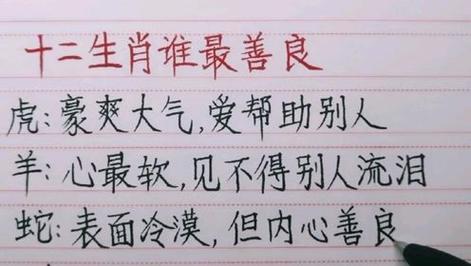 十二生肖谁最善良
虎:豪爽大气,爱帮助别人
羊:心最软,见不得别人流泪
蛇:表面冷漠,但内心善良